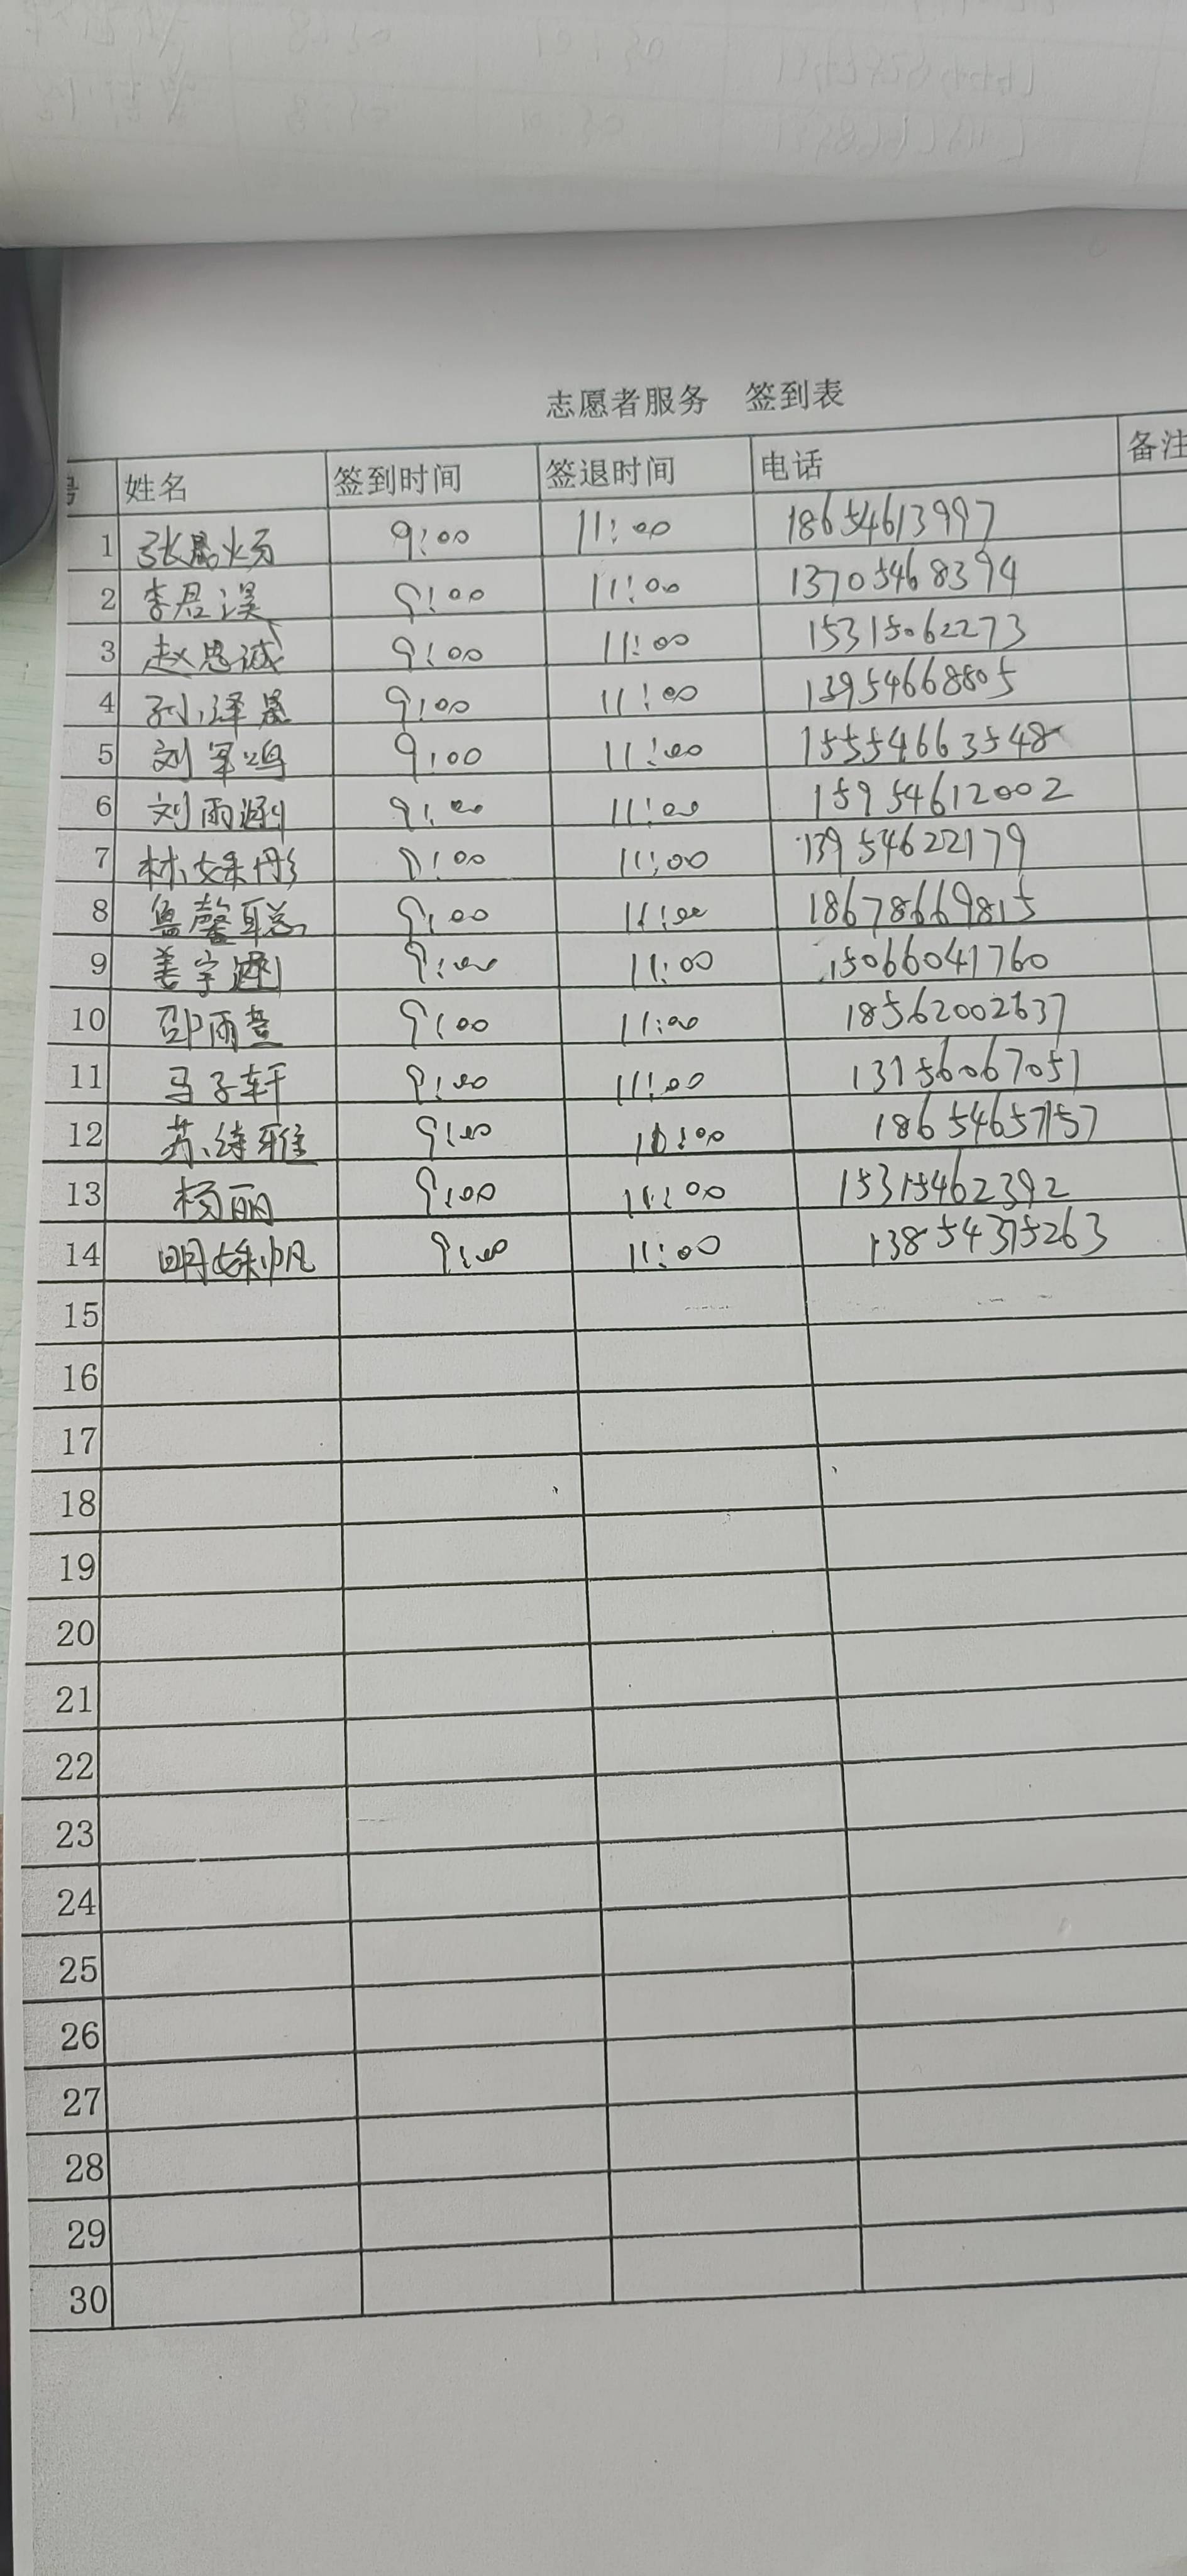 志愿者服务 签到表
号 姓名 签到时间 签退时间 电话 备注
1 张晨炀 9:00 11:00 18654613997
2 李君淏 9:00 11:00 13705468394
3 赵思诚 9:00 11:00 15315062273
4 孙泽晟 9:00 11:00 13954668805
5 刘军鸣 9:00 11:00 15554663548
6 刘雨涵 9:00 11:00 15954612002
7 林婇彤 9:00 11:00 13954622179
8 鲁馨聪 9:00 11:00 18678669815
9 姜宇涵 9:00 11:00 15066041760
10 邵雨萱 9:00 11:00 18562002637
11 马子轩 9:00 11:00 13156067051
12 苏绮雅 9:00 11:00 18654657157
13 杨丽 9:00 11:00 15315462392
14 明婇帆 9:00 11:00 13854375263
15
16
17
18
19
20
21
22
23
24
25
26
27
28
29
30